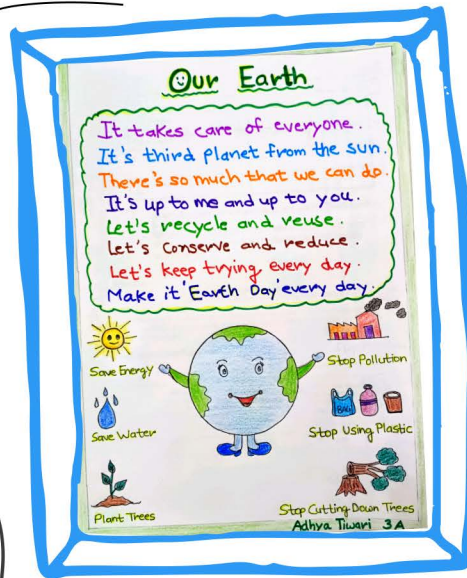 Our Earth
It takes care of everyone.
It's third planet from the sun.
There's so much that we can do.
It's up to me and up to you.
Let's recycle and reuse.
Let's conserve and reduce.
Let's keep trying every day.
Make it 'Earth Day' every day.
Save Energy
Stop Pollution
Save Water
BAG
Stop Using Plastic
Plant Trees
Stop Cutting Down Trees
Adhya Tiwari 3A